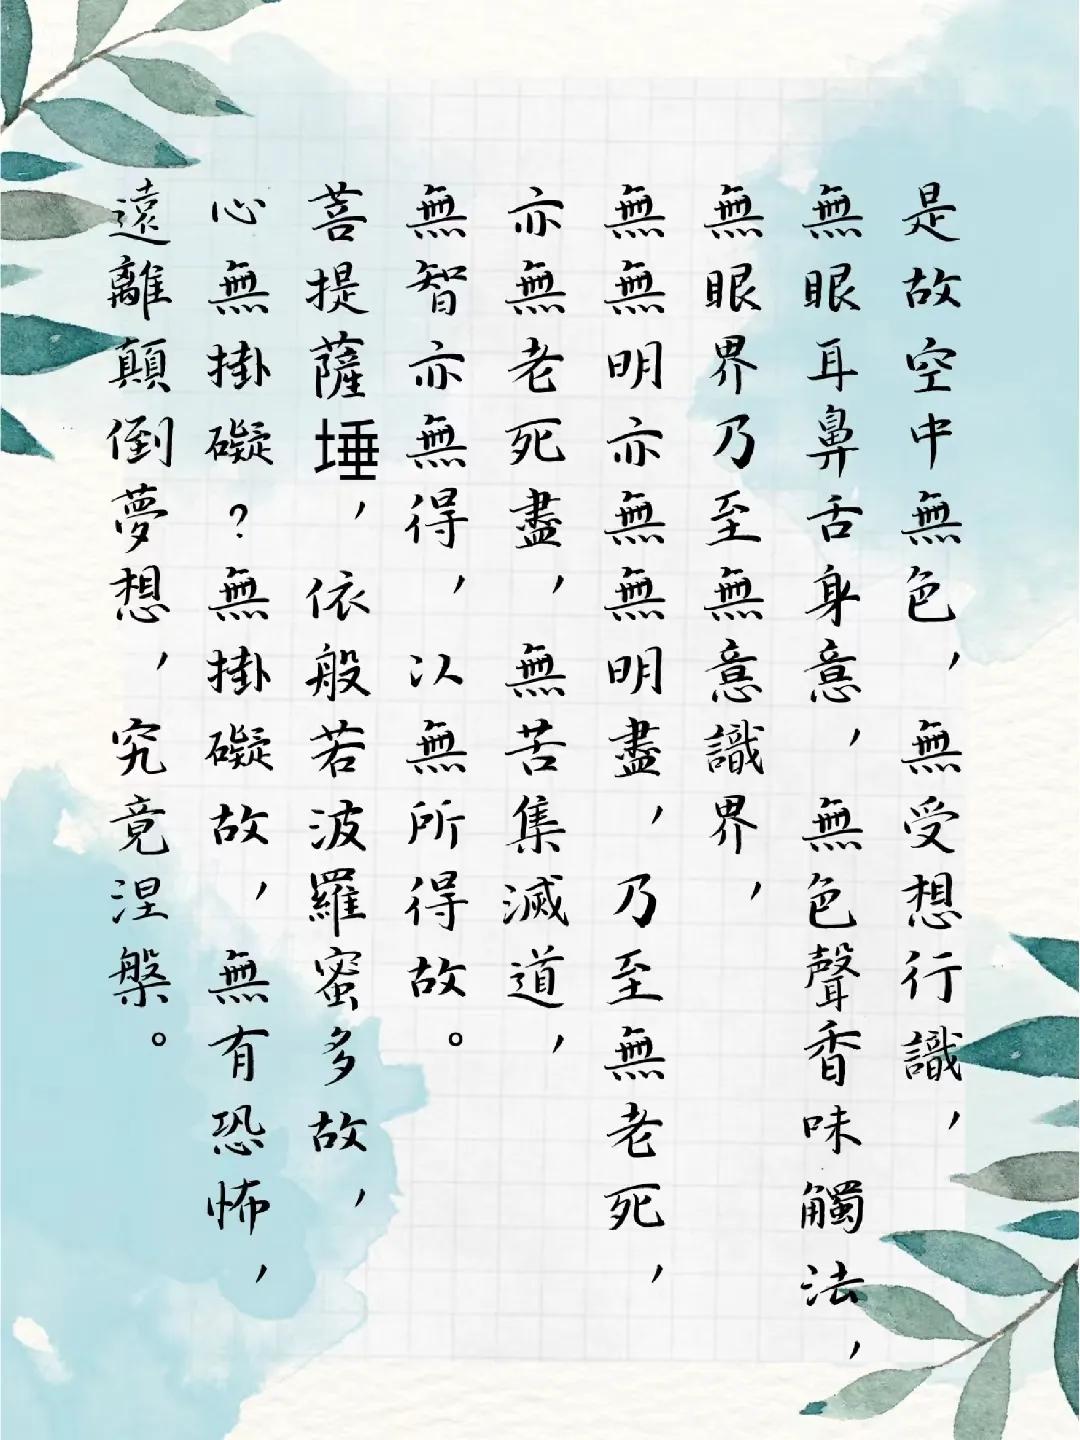 是故空中無色，無受想行識，
無眼耳鼻舌身意，無色聲香味觸法，
無眼界乃至無意識界，
無無明亦無無明盡，乃至無老死，
亦無老死盡，無苦集滅道，
無智亦無得，以無所得故。
菩提薩埵，依般若波羅蜜多故，
心無掛礙？無掛礙故，無有恐怖，
遠離顛倒夢想，究竟涅槃。